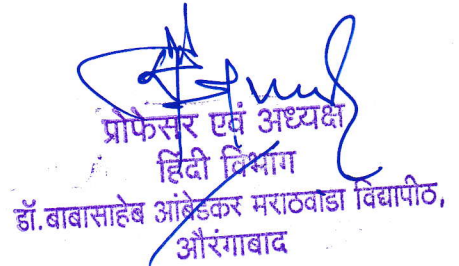 प्रोफेसर एवं अध्यक्ष
हिंदी विभाग
डॉ.बाबासाहेब आंबेडकर मराठवाडा विद्यापीठ,
औरंगाबाद